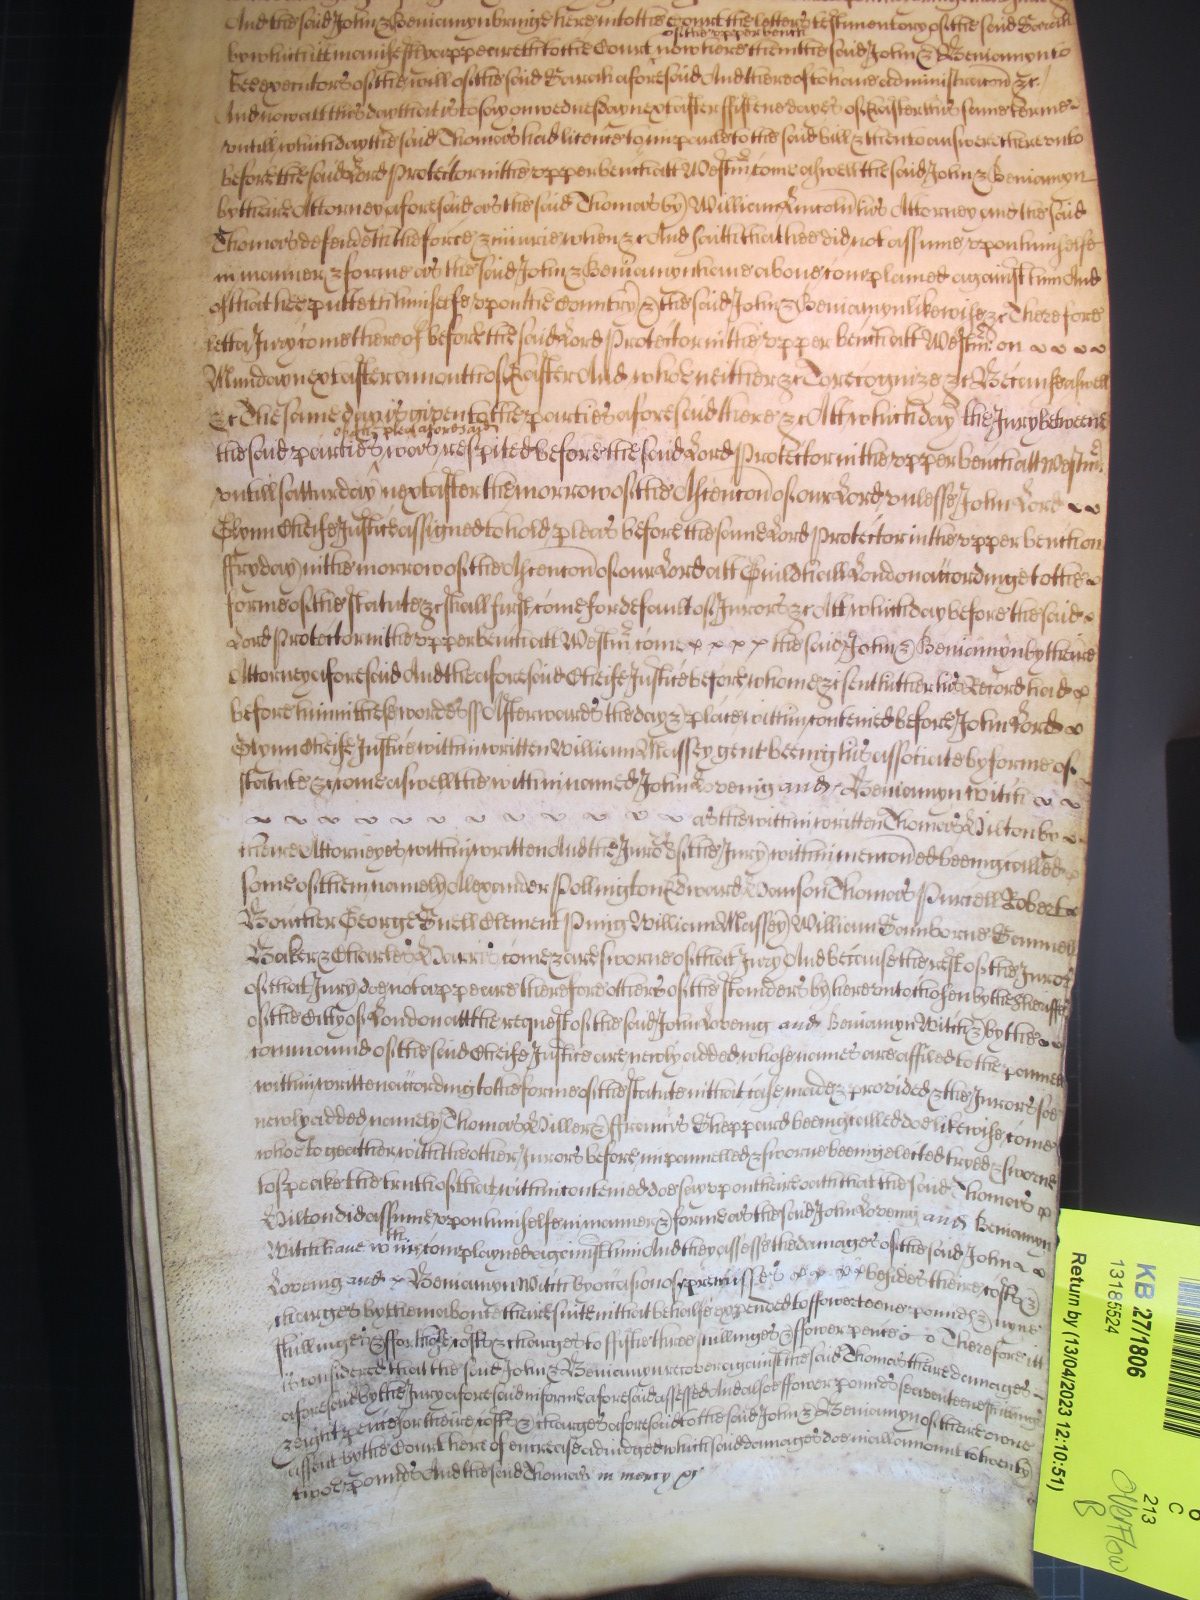 And the said John & Beniamyn bringe here into the Court the letters testimentory of the said Sarah
of the upper bench
by which itt manifestly appeareth to the Court now here them the said John & Beniamyn to
bee executors of the will of the said Sarah aforesaid And thereof to have administracon &c.
And now att this day that is to say on wednesday next after fifteene dayes of Easter this same terme
untill which day the said Thomas had licence to imparle to the said bill & then to answere thereunto
before the said Lord Protector in the upper bench att Westmr come aswell the said John & Beniamyn
by theire Attorney aforesaid as the said Thomas by William Lincoln his Attorney and the said
Thomas defendeth the force & iniurie when &c And saith that hee did not assume upon himselfe
in manner & forme as the said John & Beniamyn have above complained against him And
of that hee putteth himselfe upon the Countrey & the said John & Beniamyn likewise &c Therefore
lett a Jury come thereof before the said Lord Protector in the upper bench att Westmr on
Munday next after a month of Easter And whoe neither &c To recognize &c Because aswell
&c The same day is given to the parties aforesaid there &c Att which day the Jury betweene
of the plea aforesaid
the said parties was respited before the said Lord Protector in the upper bench att Westmr
untill satturday next after the morrow of the Ascencon of our Lord unlesse John Lord
Glynn Cheife Justice assigned to hold pleas before the same Lord Protector in the upper bench on
ffryday in the morrow of the Ascencon of our Lord att Guildhall London accordinge to the
forme of the statute &c shall first come for default of Jurors &c Att which day before the said
Lord Protector in the upper bench att Westmr come the said John & Beniamyn by theire
Attorney aforesaid And the aforesaid Cheife Justice before whome &c sent hither his Record had
before him in these wordes ss Afterwards the day & place within conteined before John Lord
Glynn Cheife Justice within written William Massey gent beeing his associate by forme of
statute &c come aswell the within named John Loveing and Beniamyn Witch
as the within written Thomas Hilton by
theire Attorneyes within written And the Jurors of the Jury within menconed beeing called
some of them namely Alexander Pollington Edward Dawson Thomas Purcell Robert
Bourcher George Snell Clement Punig William Massey William Samborne Samuell
Baker & Charles Harris come & are sworne of that Jury And because the rest of the Jurors
of that Jury doe not appeare therefore others of the standers by hereunto chosen by the Sheriffs
of the Citty of London att the request of the said John Loveing and Beniamyn Witch & by the
command of the said Cheife Justice are newly added whose names are affiled to the pannell
within written according to the forme of the statute in that case made & provided & the Jurors soe
newly added namely Thomas Hiller & ffrancis Sheppard beeing called doe likewise come
whoe togeather with the other Jurors before impannelled & sworne beeing elected tryed & sworne
to speake the truth of that within conteined doe say upon theire oath that the said Thomas
Hilton did assume upon himselfe in manner & forme as the said John Loveing and Beniamyn
Witch have within complayned against him And they assesse the damages of the said John
Loveing and Beniamyn Witch by occasion of premisses besides theire costs &
charges by them about theire suite in that behalfe expended to fower teene pounds & nyne
shillinges & ffor those costs & charges to fiftie three shillinges & fower pence Therefore itt
is considered that the said John & Beniamyn recover against the said Thomas theire damages
aforesaid by the Jury aforesaid in forme aforesaid assessed And alsoe ffower pounds seaventeene shillings
& eight pence for theire costs & charges aforesaid to the said John & Beniamyn of theire owne
assent by the Court here of encrease adiudged which said damages doe in all amount to twenty
twoe pounds And the said Thomas in mercy &c
KB 27/1806
13185524
Return by (13/04/2023 12:10:51)
C
213
Overflow
B